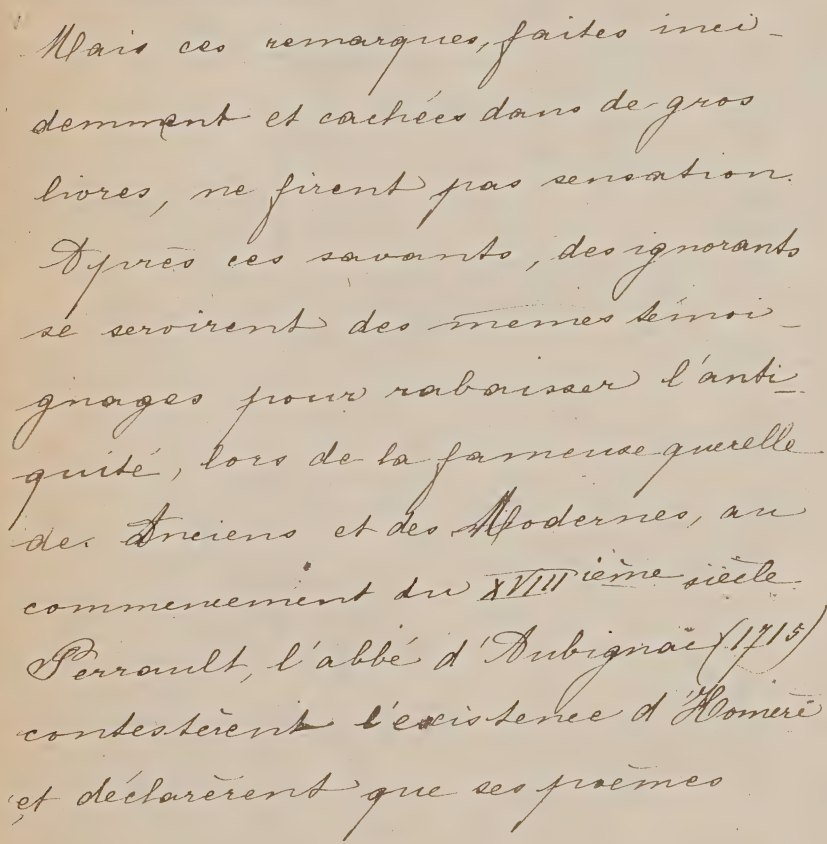 Mais ces remarques, faites inci-
demment et cachées dans de gros
livres, ne firent pas sensation.
Après ces savants, des ignorants
se servirent des mêmes témoi-
gnages pour rabaisser l'anti-
quité, lors de la fameuse querelle
des Anciens et des Modernes, au
commencement du XVIIIième siècle
Perrault, l'abbé d'Aubignac (1715)
contestèrent l'existence d'Homère
et déclarèrent que ses poèmes